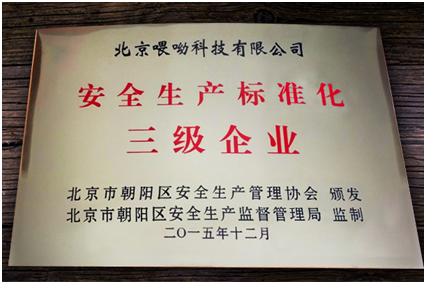 北京喂呦科技有限公司
安全生产标准化
三级企业
北京市朝阳区安全生产管理协会 颁发
北京市朝阳区安全生产监督管理局 监制
二〇一五年十二月